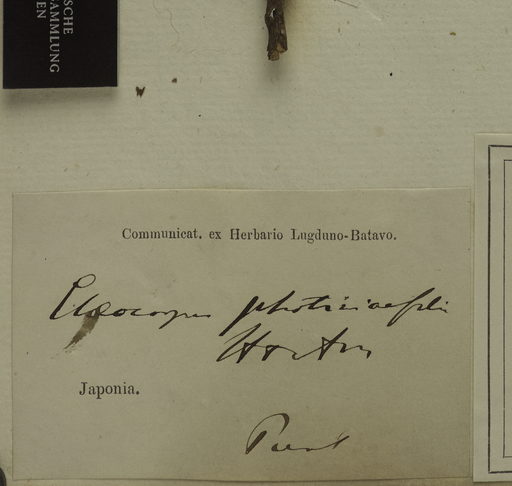 SCHE
SAMMLUNG
EN
Communicat. ex Herbario Lugduno-Batavo.
Elaeocarpus photiniaefolia
Japonia.